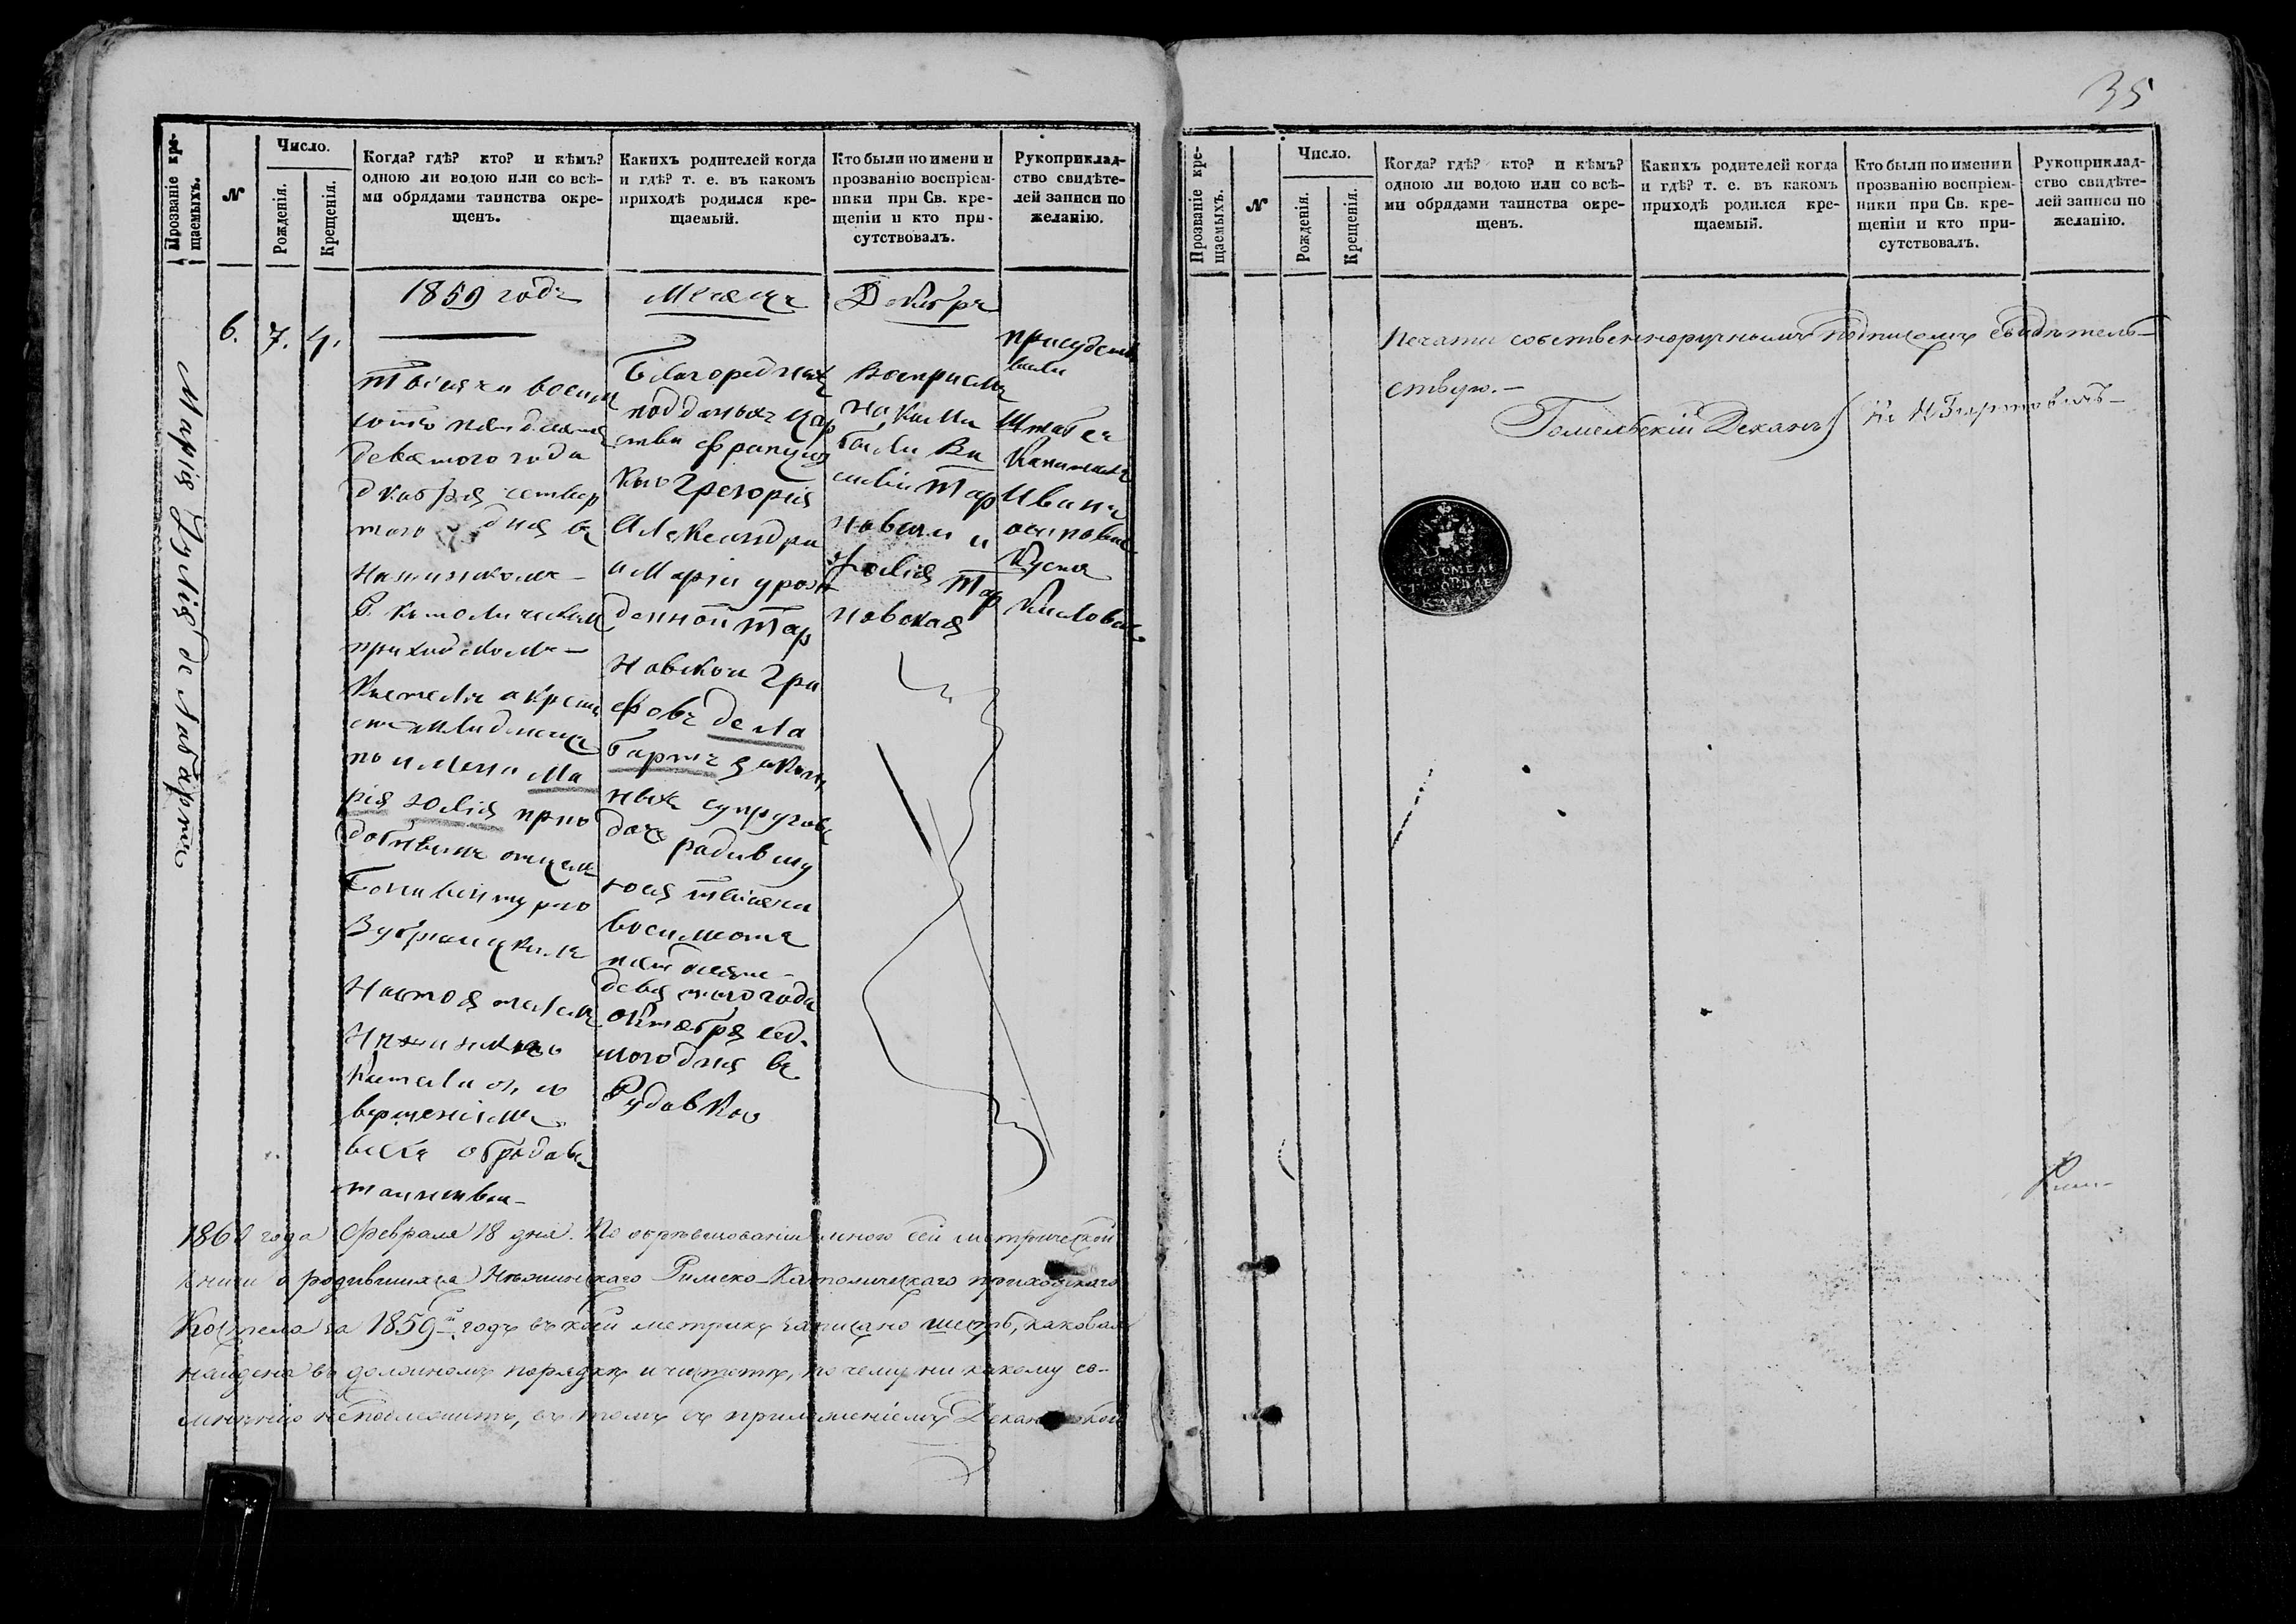 35
Прозваніе кре-
щаемыхъ.
N
Число.
Рожденія.
Крещенія.
Когда? гдѣ? кто? и кѣмъ?
одною ли водою или со всѣ-
ми обрядами таинства окре-
щенъ.
Какихъ родителей когда
и гдѣ? т. е. въ какомъ
приходѣ родился кре-
щаемый.
Кто были по имени и
прозванію воспріем-
ники при Св. кре-
щеніи и кто при-
сутствовалъ.
Рукоприклад-
ство свидѣте-
лей записи по
желанію.
1859 годъ
Месяцъ
Декабрь
Марія Юлія де Лабартъ
6.
7.
4.
Тысяча восем
сотъ пятьдесятъ
девятого года
декабря четвер
того дня въ
Нежинскомъ
Р. католическомъ
приходскомъ
Костелѣ окрещ
по имени Ма
рія Юлія препо
добнымъ отцемъ
Бонавентурою
Настоятелемъ
Нежинскаго
Костела съ со
вершеніемъ
всехъ обрядовъ
таинства
Благородныхъ
подданыхъ цар
ства француз
каго Грегорія
Александра
и Маріи урож
денной Тар
новской гра
фовъ де Ла
бартъ закон
ныхъ супруговъ
дочь родившу
юся тысяча
восемсотъ
пятдесятъ
девятого года
октября сед
мого дня въ
Рудовкѣ
Воспріем
никами
были Ва
силій Тар
новскій и
Юлія Тар
новская
присудство
вали
Штабсъ
Капитанъ
Иванъ
осиповъ
1860 года Февраля 18 дня. По освидѣтельствованіи мною сей метрической
книги о родившихся Нѣжинскаго Римско-Католическаго приходскаго
Костела за 1859й годъ въ коей метрикъ записано шесть, каковая
найдена въ должномъ порядкѣ и чистотѣ, по чему ни какому со-
мнѣнію неподлежитъ, въ томъ съ приложеніемъ Деканской
Печати собственноручнымъ подписомъ свидѣтель-
ствую.
Гомельскій Деканъ